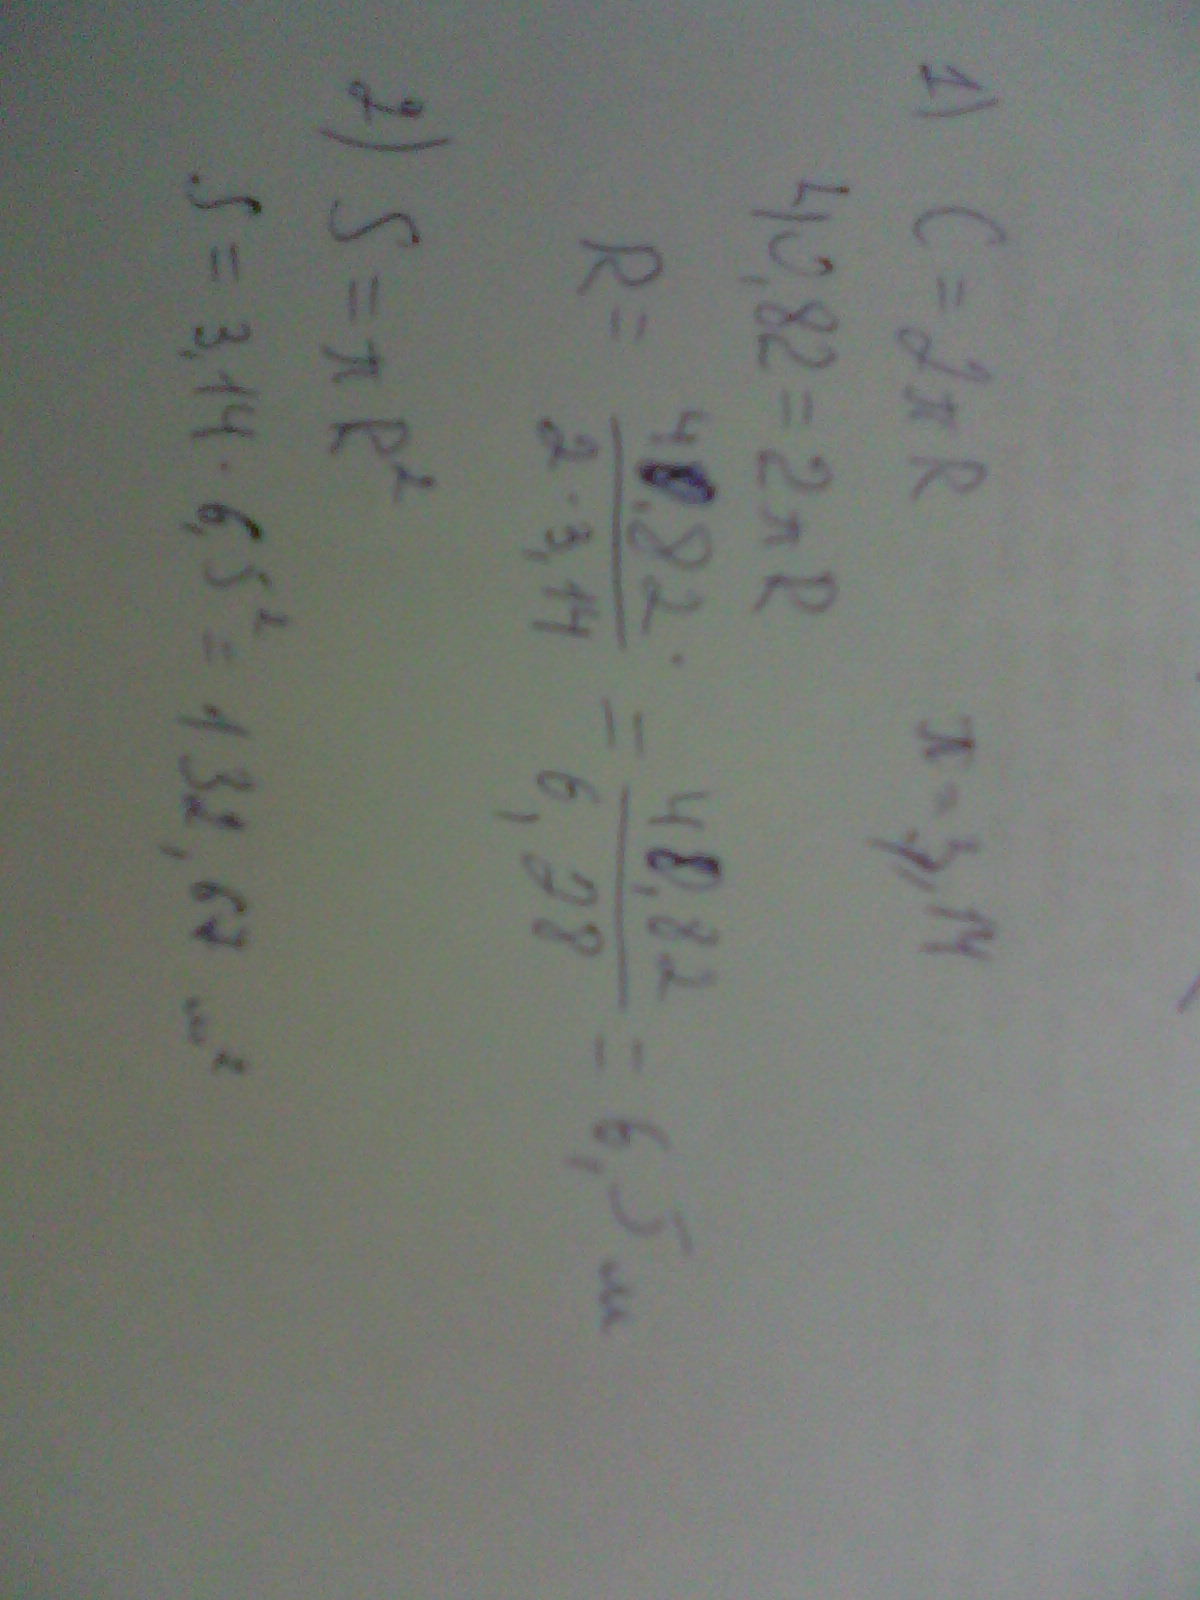 1) C = 2πR π = 3,14
40,82 = 2πR
R = 40,82 / 2 · 3,14 = 40,82 / 6,28 = 6,5 м
2) S = πR²
S = 3,14 · 6,5² = 132,67 м²